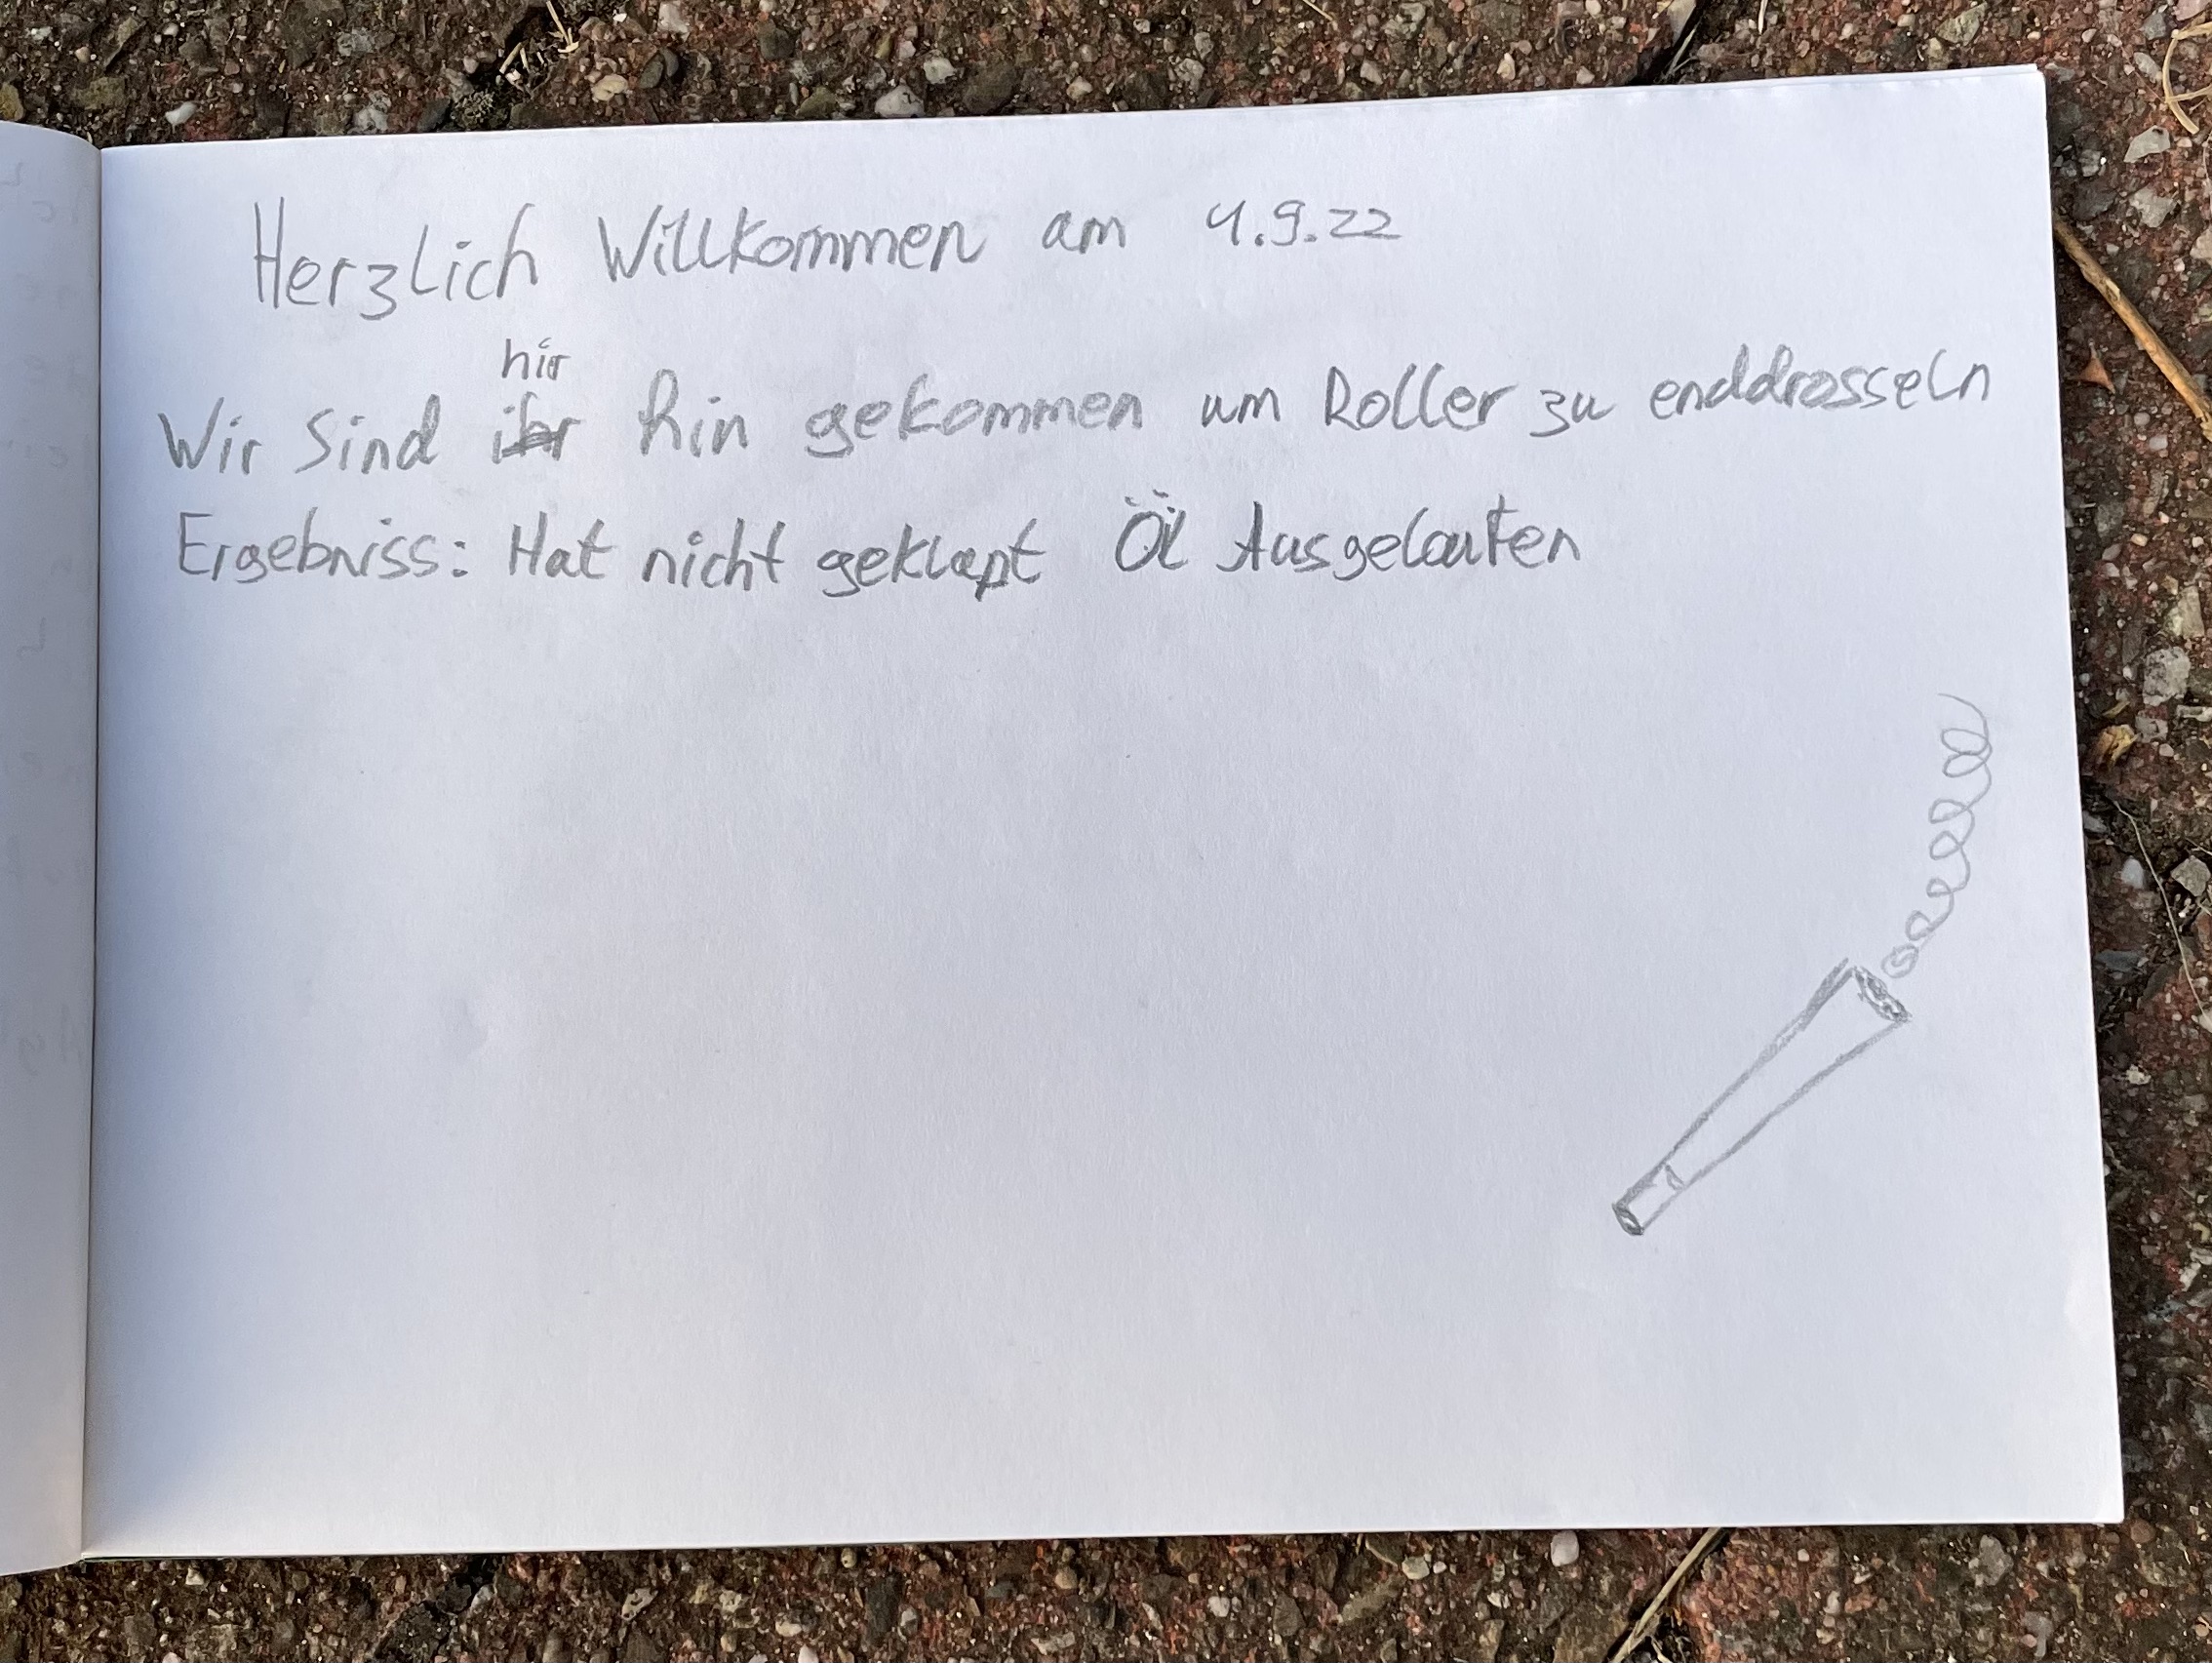 Herzlich Willkommen am 4.9.22
hir
Wir Sind ihr hin gekommen um Roller zu enddrosseln
Ergebniss: Hat nicht geklapt Öl Ausgelaufen